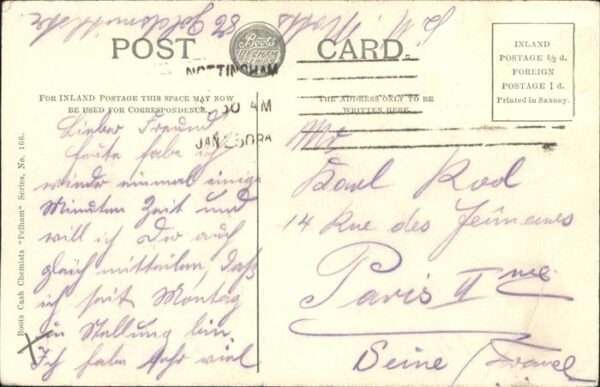 S. W. Watts 82 Goldsmith Str
POST CARD.
Boots
NOTTINGHAM
10 AM
JAN 25 09A
FOR INLAND POSTAGE THIS SPACE MAY NOW
BE USED FOR CORRESPONDENCE.
THE ADDRESS ONLY TO BE
WRITTEN HERE.
INLAND
POSTAGE ½ d.
FOREIGN
POSTAGE 1 d.
Printed in Saxony.
Boots Cash Chemists "Pelham" Series, No. 166.
Lieber Freund
heute habe ich
wieder einmal einige
Minuten Zeit und
will ich Dir auch
gleich mitteilen, daß
ich seit Montag
in Stellung bin
Ich habe sehr viel
Mr
Karl Rod
14 Rue des Jeûneurs
Paris IIme
Seine / France